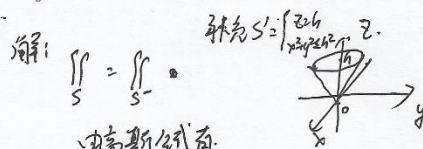 解：∬_S = ∬_{S^-}
补充 S': { z=h x²+y²≤h²
Z
h
0
y
x
由高斯公式有.